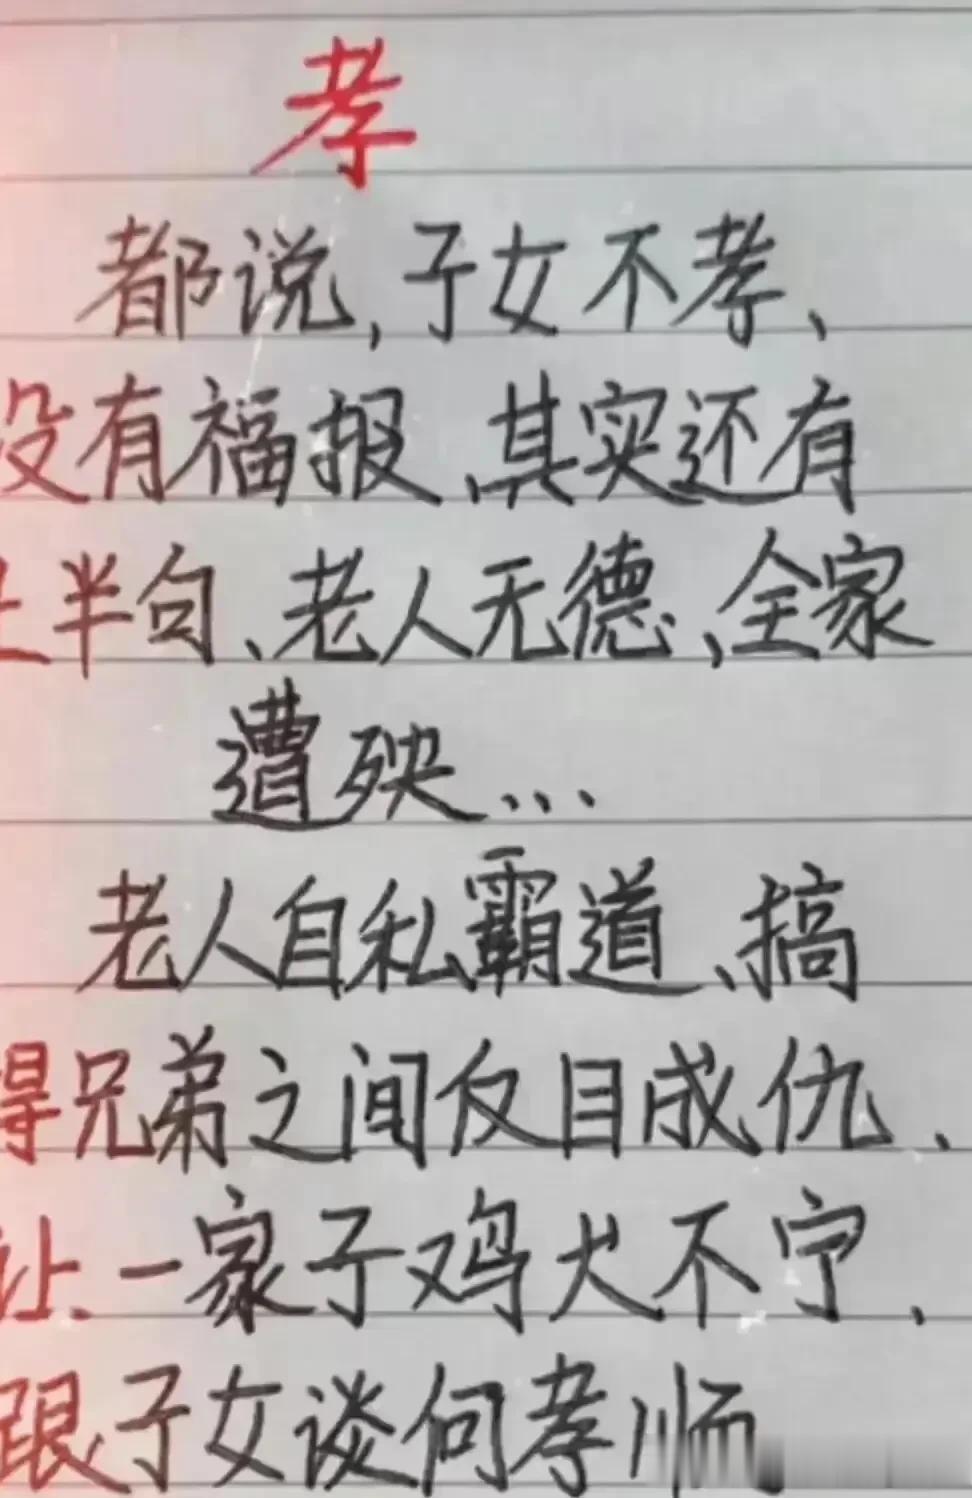 孝
都说,子女不孝、
没有福报、其实还有
上半句、老人无德、全家
遭殃...
老人自私霸道、搞
得兄弟之间反目成仇、
让一家子鸡犬不宁、
跟子女谈何孝顺